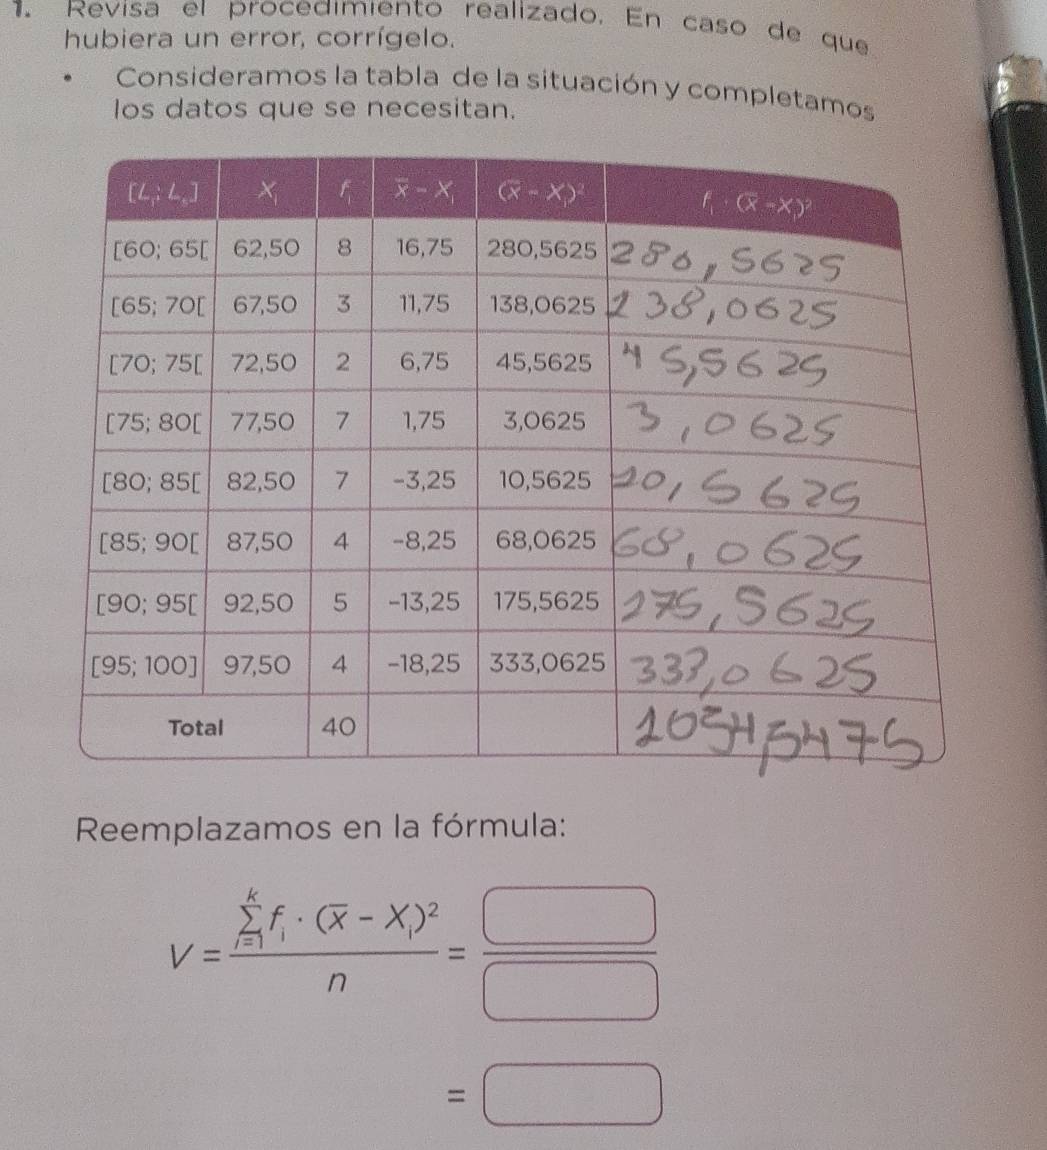 1. Revisa el procedimiento realizado. En caso de que
hubiera un error, corrígelo.
• Consideramos la tabla de la situación y completamos
los datos que se necesitan.
[Lᵢ; Lₛ] Xᵢ fᵢ x̄ - Xᵢ (x̄ - Xᵢ)² fᵢ · (x̄ - Xᵢ)²
[60; 65[ 62,50 8 16,75 280,5625 280,5625
[65; 70[ 67,50 3 11,75 138,0625 138,0625
[70; 75[ 72,50 2 6,75 45,5625 45,5625
[75; 80[ 77,50 7 1,75 3,0625 3,0625
[80; 85[ 82,50 7 -3,25 10,5625 10,5625
[85; 90[ 87,50 4 -8,25 68,0625 68,0625
[90; 95[ 92,50 5 -13,25 175,5625 175,5625
[95; 100] 97,50 4 -18,25 333,0625 333,0625
Total 40 1054,5475
Reemplazamos en la fórmula:
V = \frac{\sum_{i=1}^{k} fᵢ · (x̄ - Xᵢ)²}{n} =
=